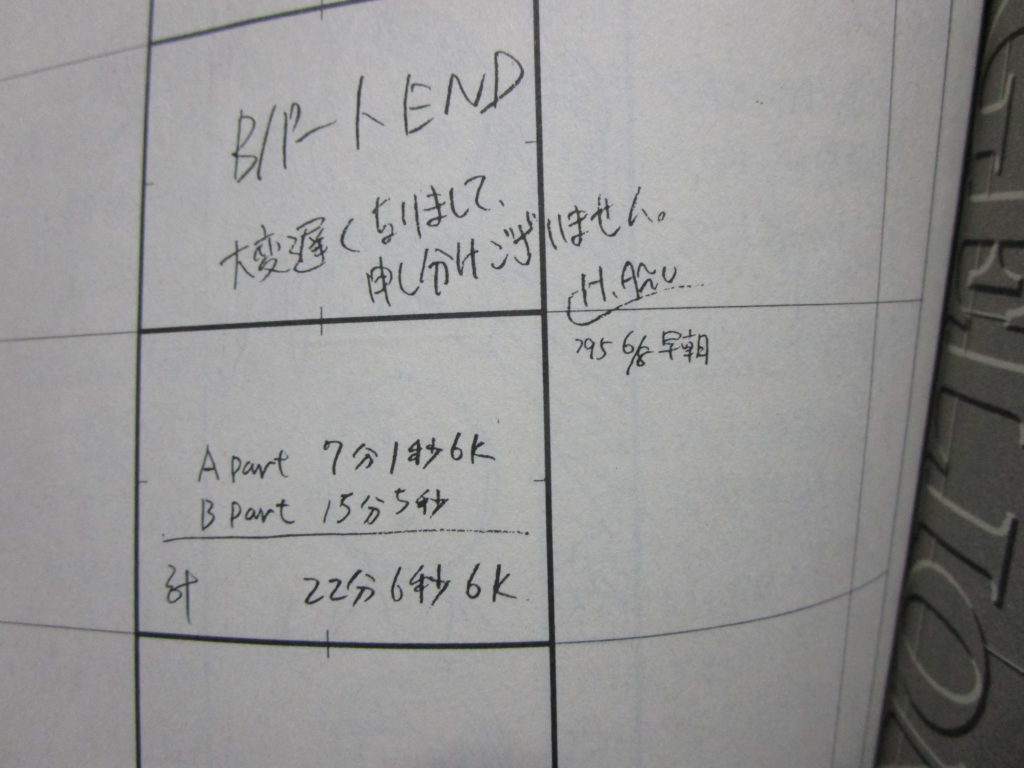 Bパート END
大変遅くなりまして、
申し分けございません。
H.Anno
'95 6/8 早朝
A part 7分1秒6K
B part 15分5秒
計 22分6秒6K